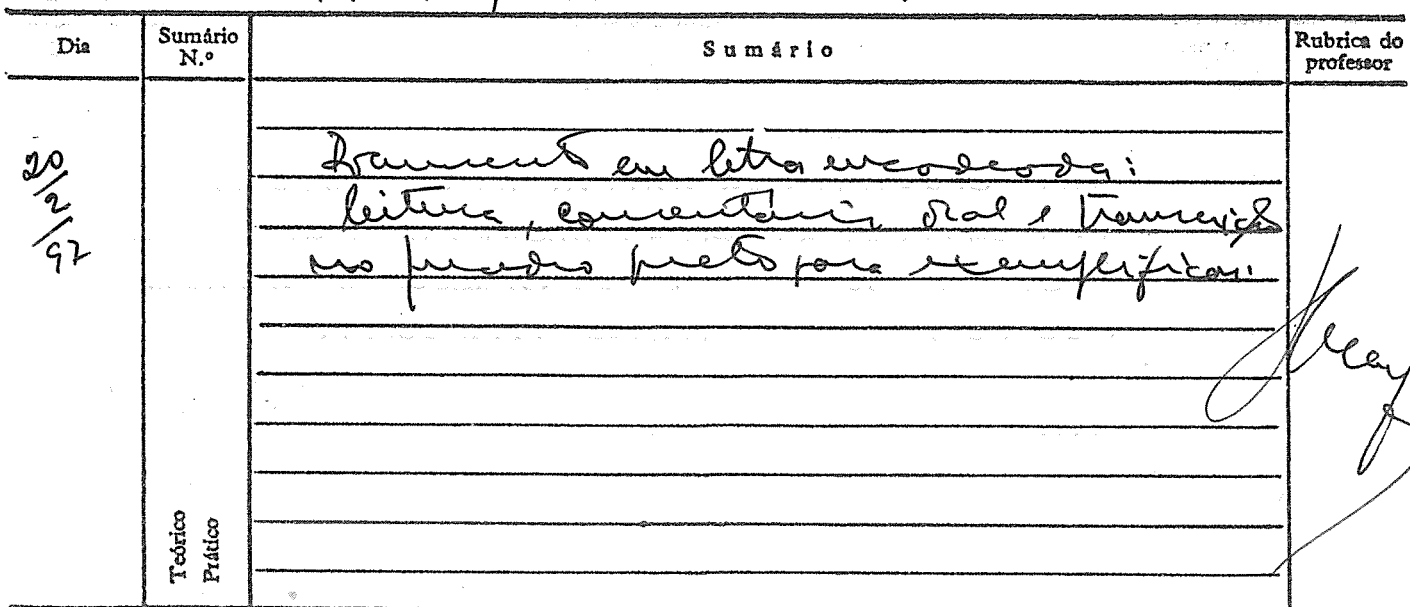 Dia
Sumário N.º
Sumário
Rubrica do professor
20/2/97
Documento em letra encadeada:
leitura, comentário oral e transcrição
no quadro preto para exemplificar.
Teórico
Prático